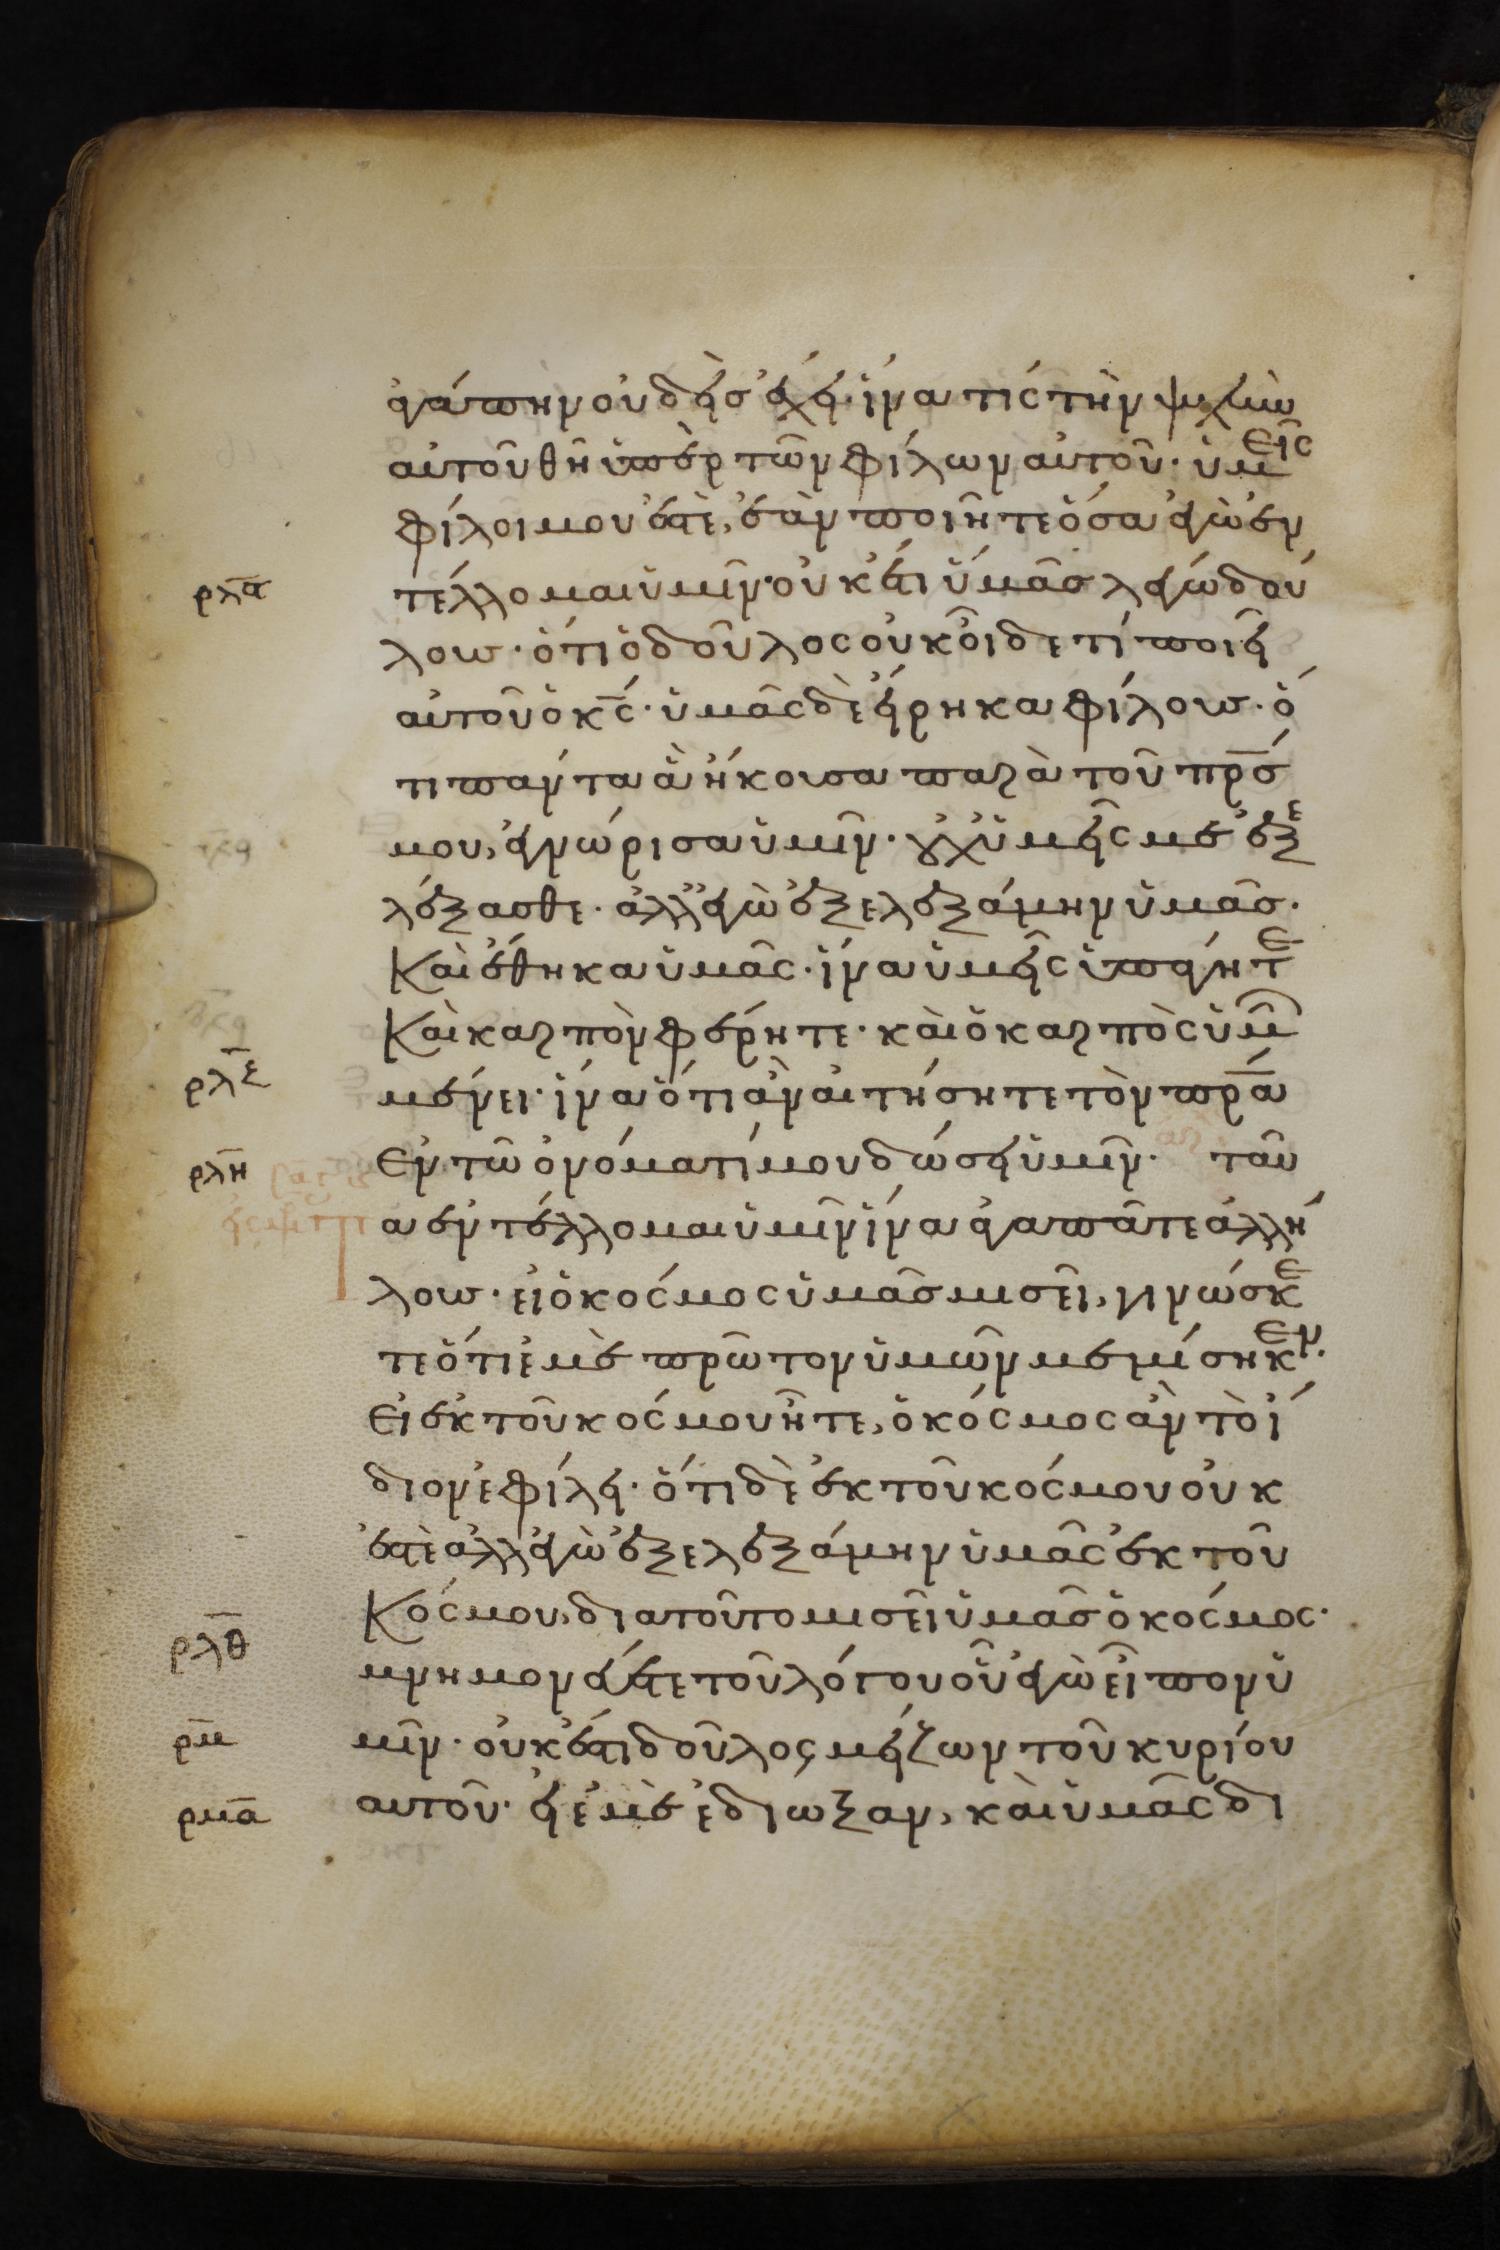 ἀγάπην οὐδεὶς ἔχει· ἵνα τίς τὴν ψυχὴν
αὐτοῦ θῆ ὑπὲρ τῶν φίλων αὐτοῦ· ὑμεῖς
φίλοι μου ἐστὲ, ἐὰν ποιῆτε ὅσα ἐγὼ ἐν
ρλζ τέλλομαι ὑμῖν· οὐκ ἔτι ὑμᾶς λέγω δού
λους· ὅτι ὁ δοῦλος οὐκ οἶδε τί ποιεῖ
αὐτοῦ ὁ κς· ὑμᾶς δὲ εἴρηκα φίλους· ὅ
τι πάντα ἃ ἤκουσα παρὰ τοῦ πρς
μου, ἐγνώρισα ὑμῖν· οὐχ ὑμεῖς με ἐξε
λέξασθε· ἀλλ' ἐγὼ ἐξελεξάμην ὑμᾶς·
Καὶ ἔθηκα ὑμᾶς· ἵνα ὑμεῖς ὑπάγητε
Καὶ καρπὸν φέρητε· καὶ ὁ καρπὸς ὑμῶν
μένει· ἵνα ὅτι ἂν αἰτήσητε τὸν πρα
ρλη Ἐν τῶ ὀνόματί μου δώσει ὑμῖν· ταῦ
α ἐντέλλομαι ὑμῖν ἵνα ἀγαπᾶτε ἀλλή
λους· εἰ ὁ κόσμος ὑμᾶς μισεῖ, γινώσκε
τε ὅτι ἐμὲ πρῶτον ὑμῶν μεμίσηκεν·
Εἰ ἐκ τοῦ κόσμου ἦτε, ὁ κόσμος ἂν τὸ ἴ
διον ἐφίλει· ὅτι δὲ ἐκ τοῦ κόσμου οὐκ
ἐστὲ ἀλλ ἐγὼ ἐξελεξάμην ὑμᾶς ἐκ τοῦ
Κόσμου, διατοῦτο μισεῖ ὑμᾶς ὁ κόσμος·
ρλθ μνημονεύετε τοῦ λόγου οὗ ἐγὼ εἶπον ὑ
ρμ μῖν· οὐκ ἔστι δοῦλος μείζων τοῦ κυρίου
ρμα αυτοῦ· εἰ ἐμὲ ἐδιωξαν, καὶ ὑμᾶς δι